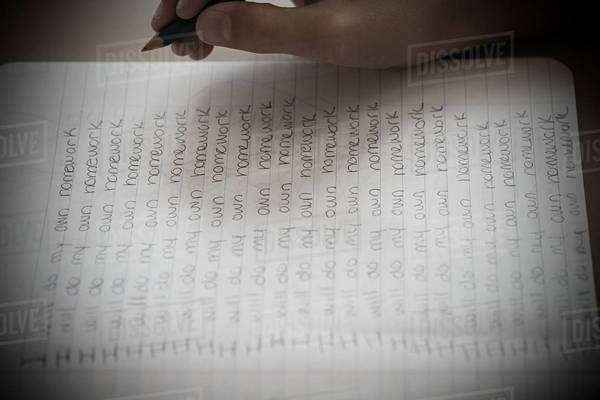 DISSOLVE
DISSOLVE
I will do my own homework
I will do my own homework
I will do my own homework
I will do my own homework
I will do my own homework
I will do my own homework
I will do my own homework
I will do my own homework
I will do my own homework
I will do my own homework
I will do my own homework
I will do my own homework
I will do my own homework
I will do my own homework
I will do my own homework
I will do my own homework
I will do my own homework
I will do my own homework
I will do my own homework
I will do my own homework
I will do my own homework
I will do my own homework
I will do my own homework
I will do my own homework
DISSOLVE
DISSOLVE
DISSOLVE